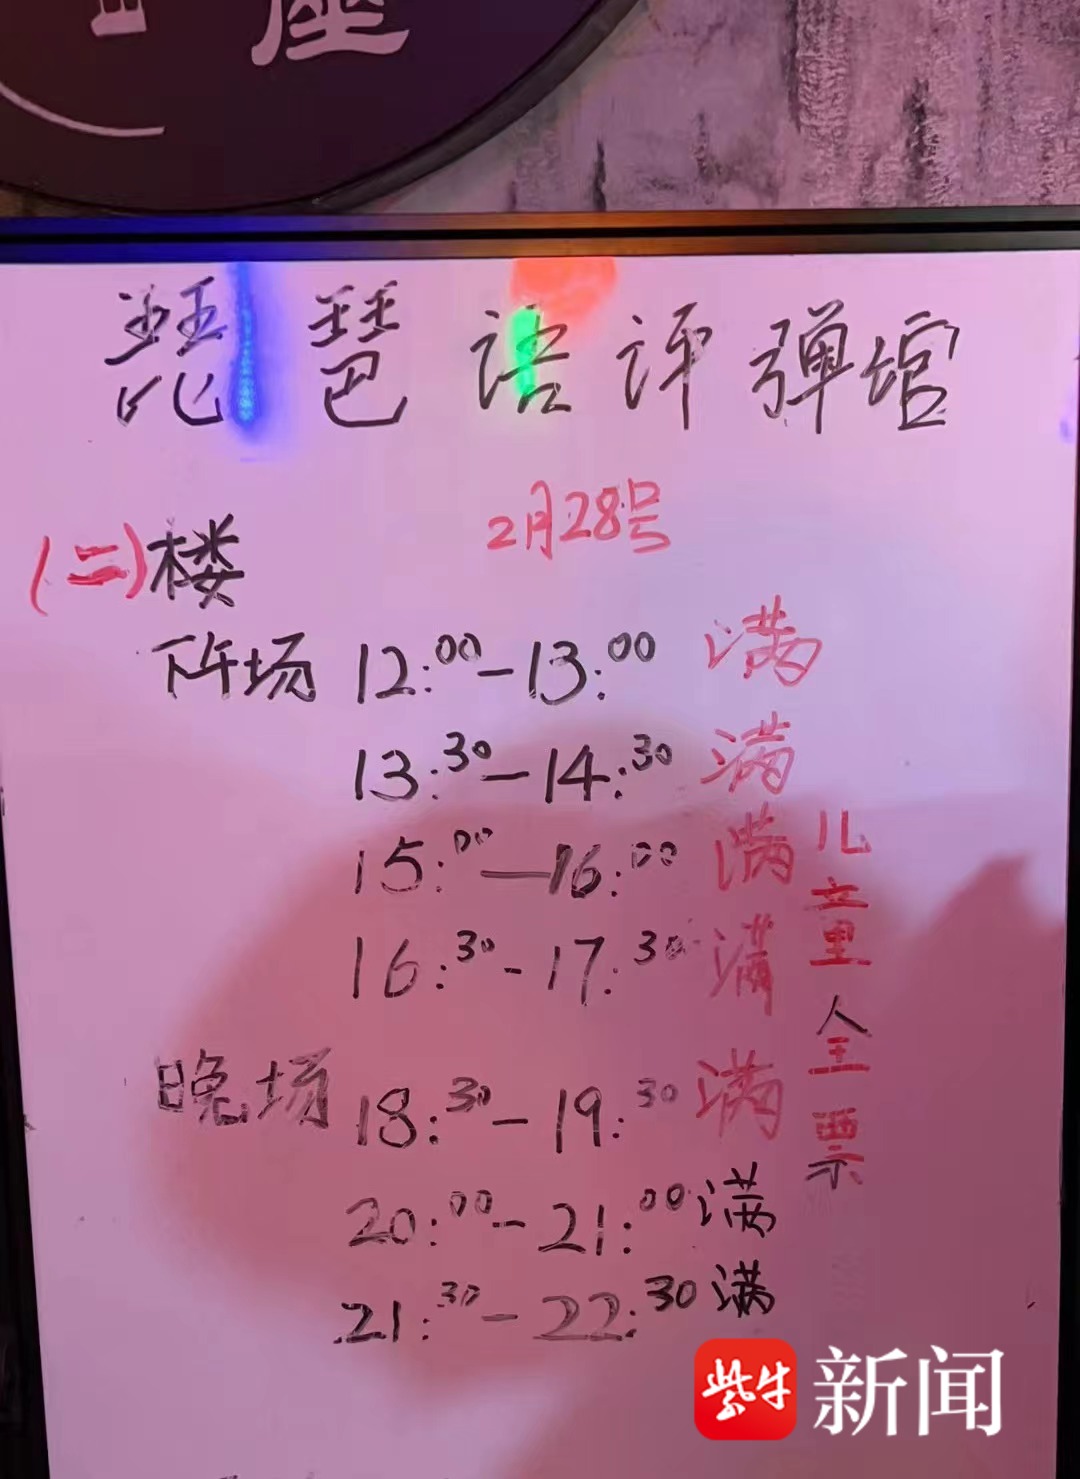 座
琵琶语评弹馆
2月28号
(二)楼
下午场 12:00-13:00 满
13:30-14:30 满
15:00-16:00 满
16:30-17:30 满
晚场 18:30-19:30 满
20:00-21:00 满
21:30-22:30 满
儿童全票
紫牛新闻